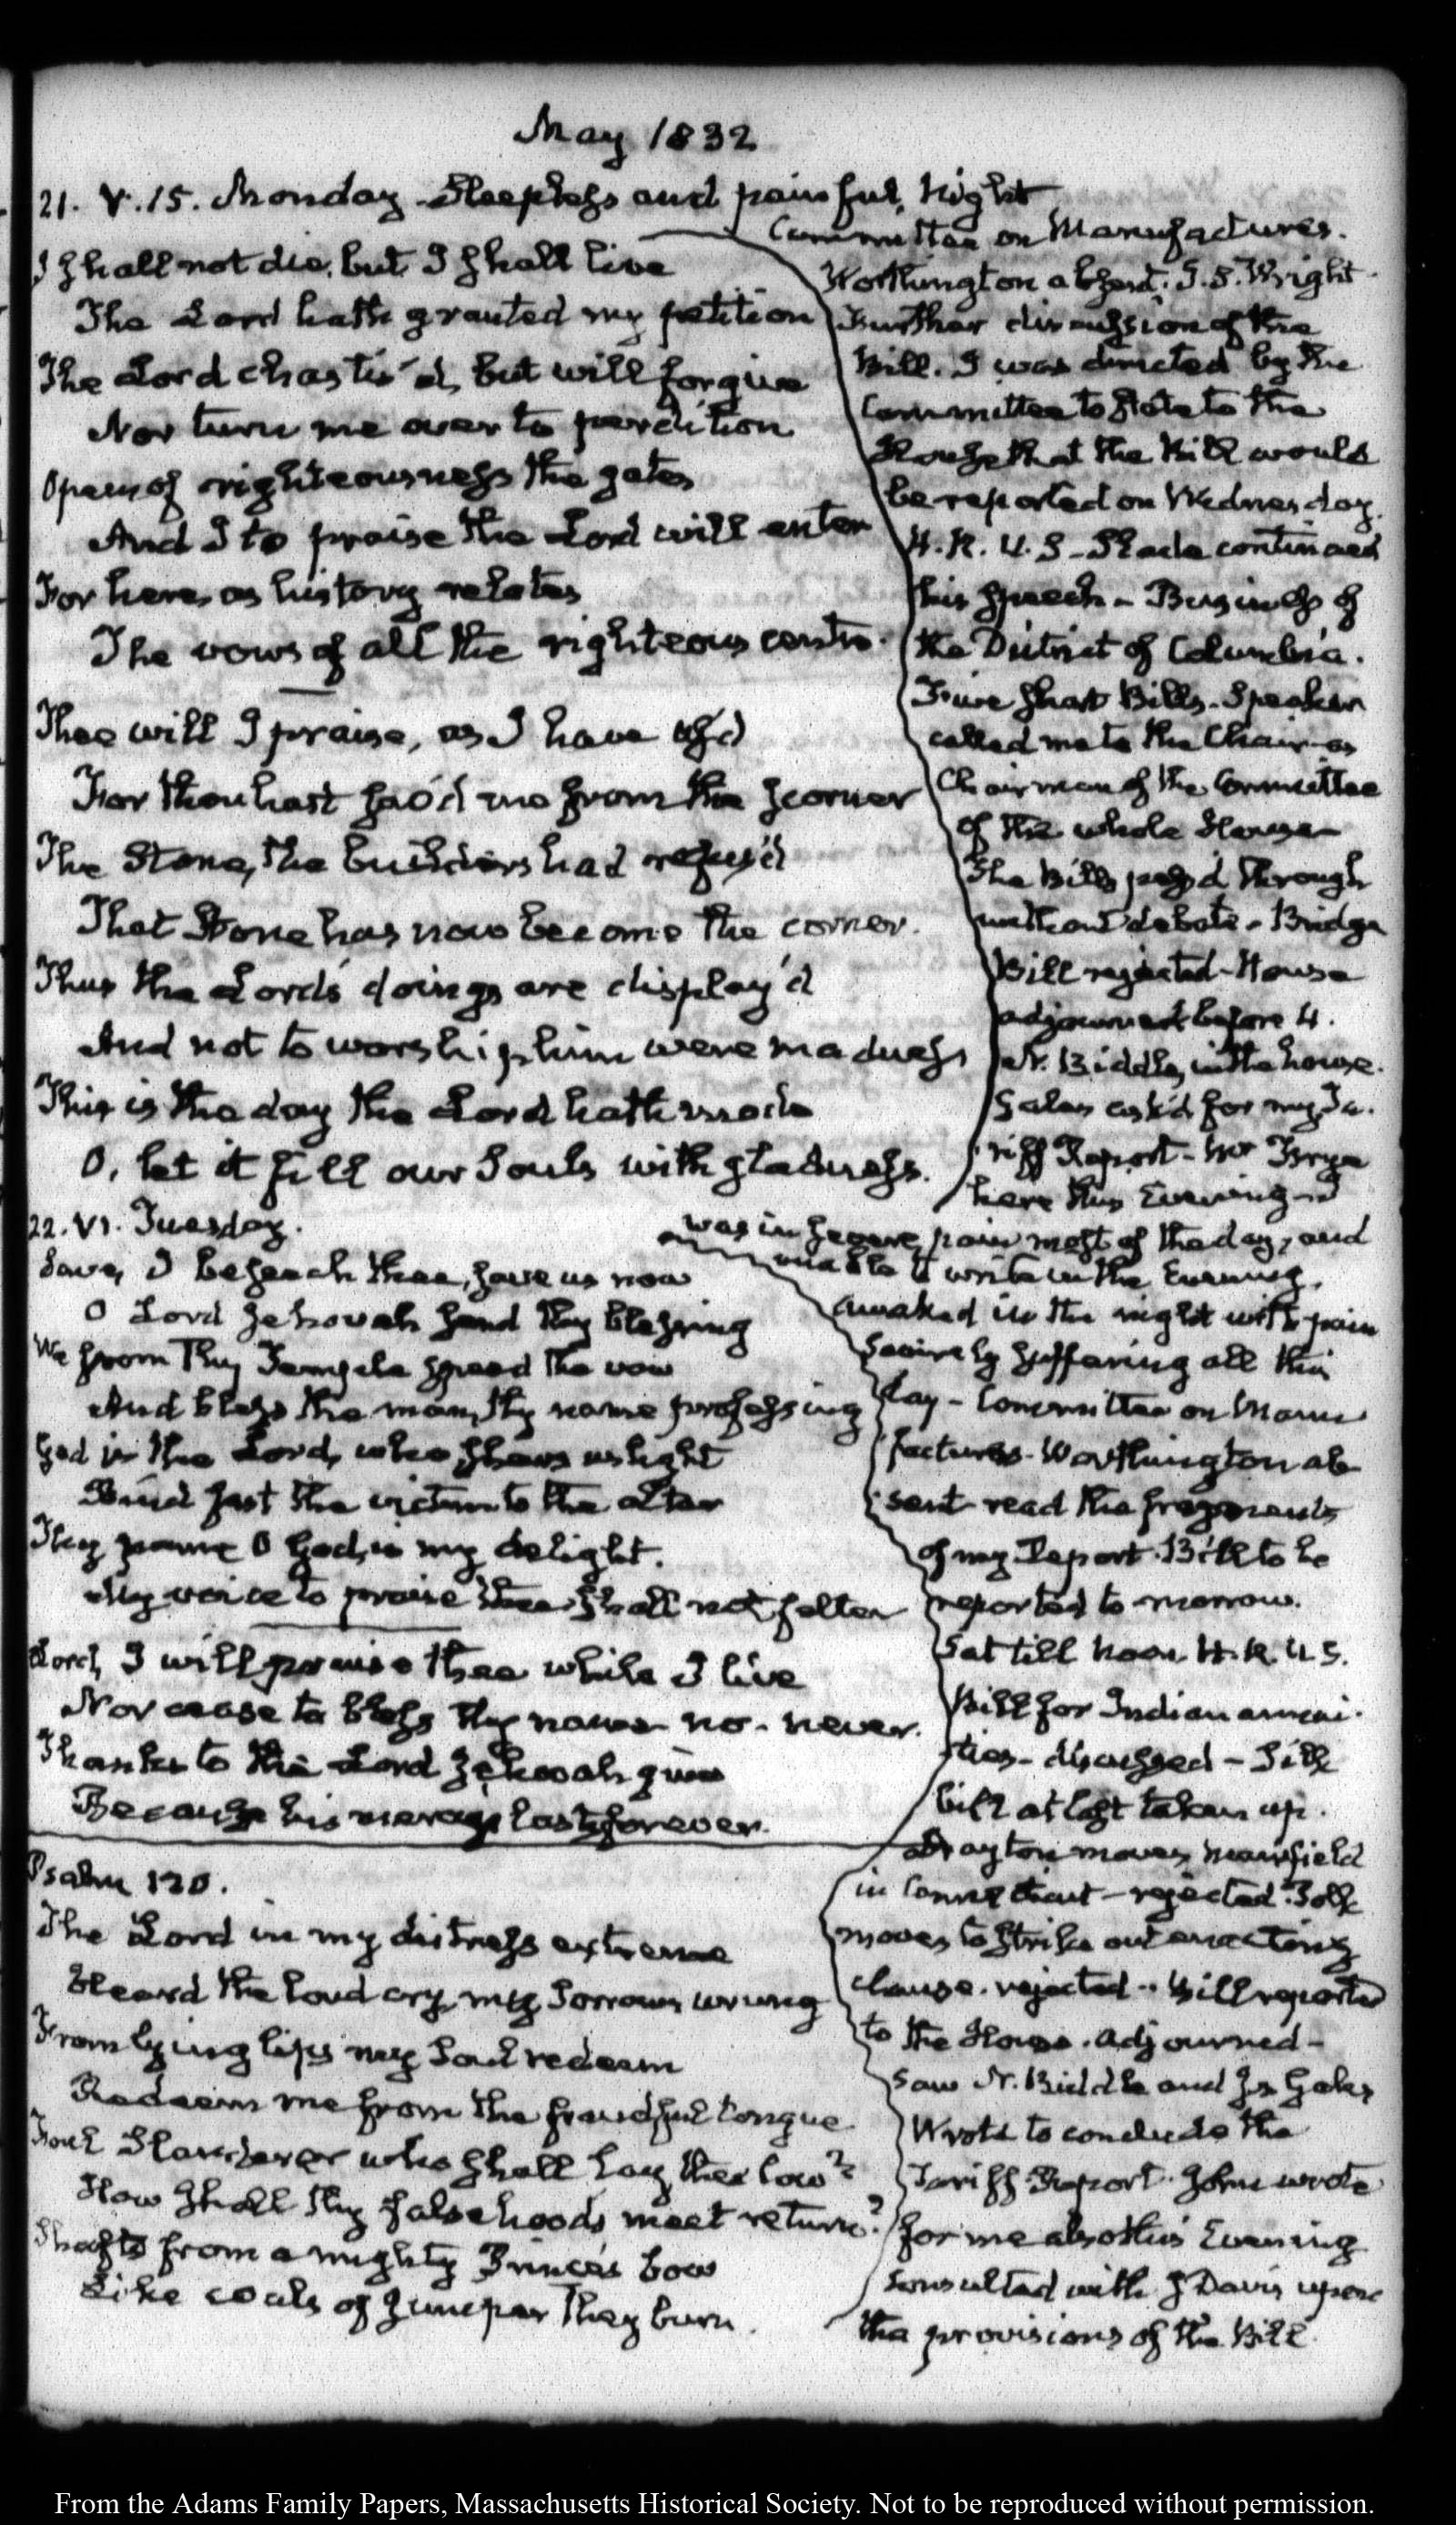 May 1832
21. V. 15. Monday Sleepless and painful, Night
I shall not die, but I shall live
The Lord hath granted my petition
The Lord chastis'd, but will forgive
Nor turn me over to perdition
Open of righteousness the gates
And I to praise the Lord will enter
For here, as history relates
The vows of all the righteous centre.
Thee will I praise, as I have us'd
For thou hast sav'd me from the scorner
The Stone, the builders had refus'd
That Stone has now become the corner.
Thus the Lord's doings are display'd
And not to worship him were madness
This is the day the Lord hath made
O, let it fill our Souls with gladness.
Committee on Manufactures.
Worthington absent. J. S. Wright
Further discussion of the
Bill. I was directed by the
Committee to state to the
House that the Bill would
be reported on Wednesday.
H. R. U. S - Slade continued
his speech - Business of
the District of Columbia.
Five short Bills - Speaker
called me to the Chair as
Chairman of the Committee
of the whole House
The Bills pass'd through
without debate - Bridge
Bill rejected - House
adjourned before 4.
N. Biddle, in the house.
Gales ask'd for my Ta-
riff Report - Mr Frye
here this Evening - I
was in severe pain most of the day, and
unable to write in the Evening.
22. VI. Tuesday.
Save, I beseech thee, save us now
O Lord Jehovah send thy blessing
We from Thy Temple spread the vow
And bless the man, thy name professing
God is the Lord, who shews us light
Bind fast the victim to the altar
Thy name O God, is my delight.
My voice to praise thee shall not falter
Lord, I will praise thee while I live
Nor cease to bless thy name no - never.
Thanks to the Lord Jehovah give
Because his mercies last forever.
Psalm 120.
The Lord in my distress extreme
Heard the loud cry, my Sorrows wrung
From lying lips my Soul redeem
Redeem me from the fraudful tongue
Foul Slanderer who shall lay thee low?
How shall thy falsehoods meet return?
Shafts from a mighty Prince's bow
Like coals of Juniper they burn.
Awaked in the night with pain
Severely suffering all this
day - Committee on Manu
factures - Worthington ab
sent read the fragments
of my Report. Bill to be
reported to-morrow.
Sat till Noon. H. R. U S.
Bill for Indian annui-
ties - discussed - Silk
bill at last taken up.
Drayton moves Mansfield
in Connecticut - rejected. Polk
moves to strike out enacting
clause. rejected - Bill reported
to the House. adjourned -
Saw N. Biddle and Js Gales
Wrote to conclude the
Tariff Report. John wrote
for me also this Evening
Consulted with J Davis upon
the provisions of the Bill
From the Adams Family Papers, Massachusetts Historical Society. Not to be reproduced without permission.